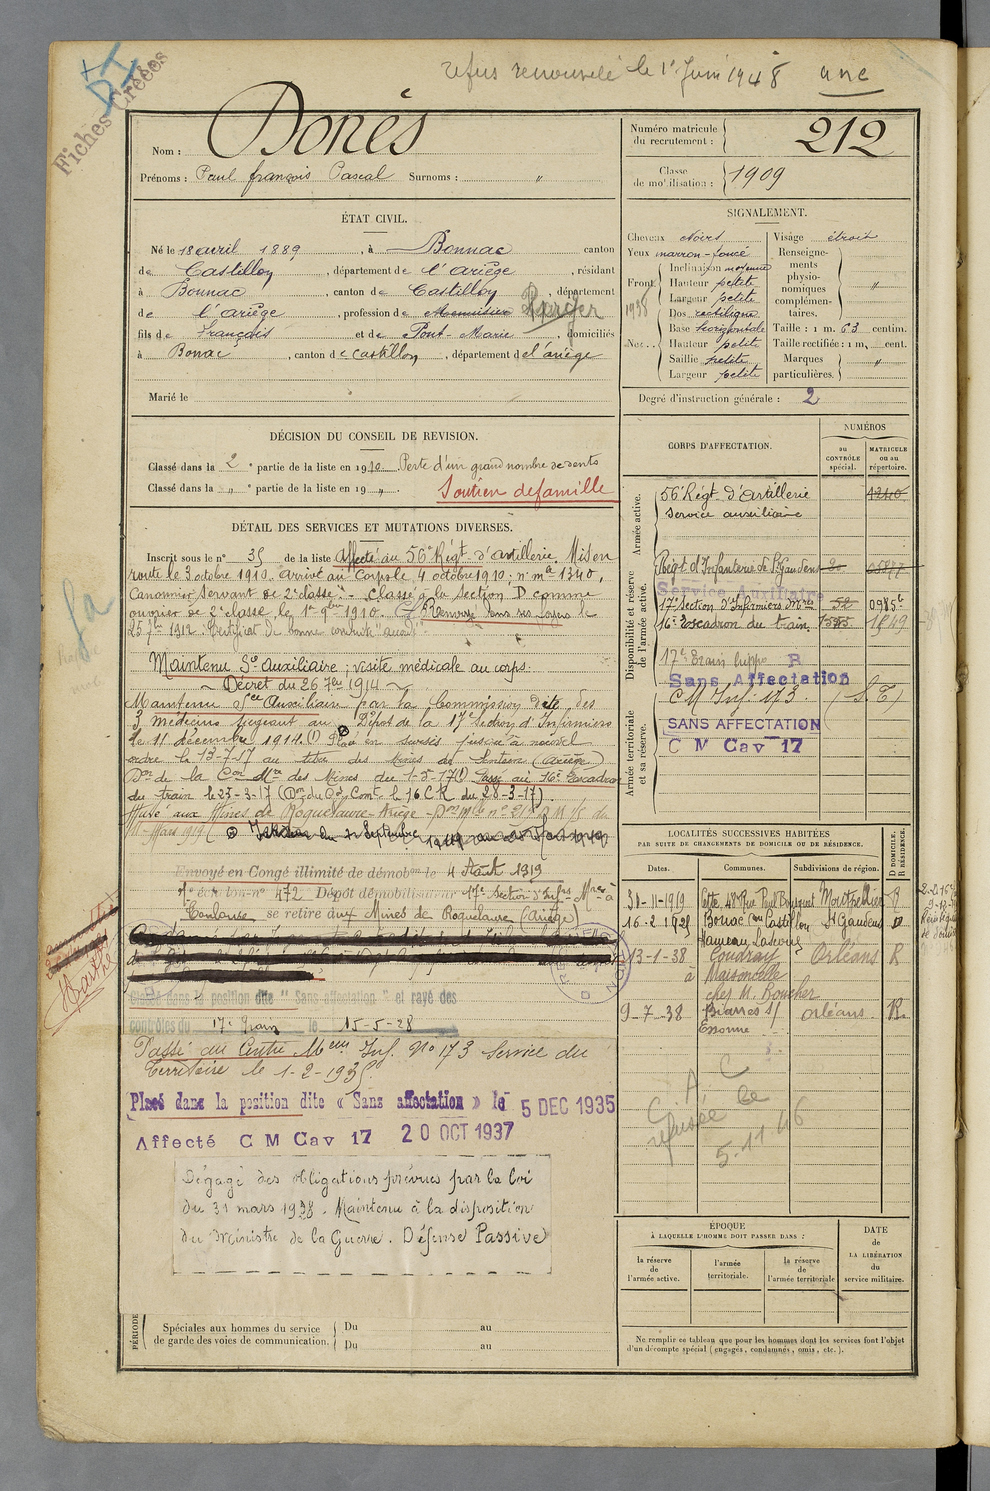 refus renouvelé le 1er Juin 1948 une
DI
Fiches Créées
Nom : Donès
Prénoms : Paul françois Pascal Surnoms : "
Numéro matricule du recrutement : 212
Classe de mobilisation : 1909
ÉTAT CIVIL.
Né le 18 avril 1889, à Bonnac canton
de Castillon, département de l'ariège, résidant
à Bonnac, canton de Castillon, département
de l'ariège, profession de Menuisier Berger
fils de François et de Pont Marie, domiciliés
à Bonac, canton de Castillon, département de l'ariège
Marié le
SIGNALEMENT.
Cheveux Noirs
Yeux marron-foncé
Front. Inclinaison moyenne
Hauteur petite
Largeur petite
1938
Nez. Dos rectiligne
Base horizontale
Hauteur petite
Saillie petite
Largeur petite
Visage étroit
Renseignements physionomiques complémentaires. "
Taille : 1 m. 63 centim.
Taille rectifiée : 1 m, cent.
Marques particulières. "
Degré d'instruction générale : 2
DÉCISION DU CONSEIL DE REVISION.
Classé dans la 2e partie de la liste en 1910. Perte d'un grand nombre de dents
Classé dans la " e partie de la liste en 19 ".
Soutien de famille
DÉTAIL DES SERVICES ET MUTATIONS DIVERSES.
Inscrit sous le n° 35 de la liste Affecté au 56e Régt. d'artillerie. Mis en
route le 3 octobre 1910. Arrivé au Corps le 4 octobre 1910; n° mle 1340,
Canonnier Servant de 2e classe. Classé à la Section D comme
ouvrier de 2e classe le 1er 9bre 1910. Renvoyé dans ses foyers le
25 7bre 1912. Certificat de bonne conduite "accordé"
Maintenu Sce Auxiliaire; visite médicale au corps.
Décret du 26 7bre 1914
Maintenu Sce Auxiliaire par la Commission dite des
3 médecins siégeant au Dépôt de la 17e Section d'Infirmiers
le 11 décembre 1914. (1) Placé en sursis jusqu'à nouvel
ordre le 13-7-17 au titre des Mines de Sentein (Ariège)
Don de la Con Mre des Mines du 1-5-17 (1) Passé au 16e Escadron
du train le 25-3-17
aux Mines de Roquelaure - Ariège
Envoyé en Congé illimité de démobon le 4 Août 1919
1er échelon n° 472 Dépôt démobilisateur 17e Section d'Infrs Mres à
Toulouse se retire aux Mines de Roquelaure (Ariège)
Classé dans la position dite "Sans affectation" et rayé des
contrôles du 17e Train le 15-5-28
Passé au Centre Meur Inf. No 173 Service du
Territoire le 1-2-1935
Placé dans la position dite « Sans affectation » le 5 DEC 1935
Affecté C M Cav 17 20 OCT 1937
Dégagé des obligations prévues par la loi
du 31 mars 1928. Maintenu à la disposition
du Ministre de la Guerre. Défense Passive
PÉRIODE
Spéciales aux hommes du service de garde des voies de communication.
Du au
Du au
CORPS D'AFFECTATION.
NUMÉROS
au CONTRÔLE spécial.
MATRICULE ou au répertoire.
Armée active.
56e Régt. d'Artillerie 1340
Service auxiliaire
Disponibilité et réserve de l'armée active.
Régt d'Infanterie de St Gaudens
Service Auxiliaire
17e Section d'Infirmiers Mres 52 0985b
16e Escadron du train 1549
17e Train
Sans Affectation
Armée territoriale et sa réserve.
C M Inf. 173 (S.T)
SANS AFFECTATION
C M Cav 17
LOCALITÉS SUCCESSIVES HABITÉES
PAR SUITE DE CHANGEMENTS DE DOMICILE OU DE RÉSIDENCE.
D DOMICILE. R RÉSIDENCE.
Dates. Communes. Subdivisions de région.
30-11-1919 Cette, Rue Paul Bousquet Montpellier R
16-2-1921 Bonac con Castillon St Gaudens D
Hameau
13-1-38 Coudray Orléans R
à Maisoncelle
chez M. Boucher
9-7-38 Briarres s/ Essonne Orléans. R.
A C
refusée le
5.11.46
ÉPOQUE
À LAQUELLE L'HOMME DOIT PASSER DANS :
la réserve de l'armée active.
l'armée territoriale.
la réserve de l'armée territoriale
DATE de LA LIBÉRATION du service militaire.
Ne remplir ce tableau que pour les hommes dont les services font l'objet
d'un décompte spécial (engagés, condamnés, omis, etc.).